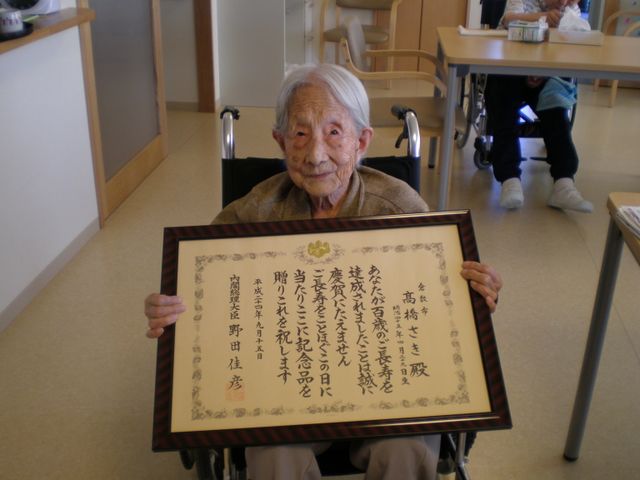 倉敷市
髙橋さき殿
明治四十五年四月二十九日生
あなたが百歳のご長寿を
達成されましたことは誠に
慶賀にたえません
ご長寿をことほぐこの日に
当たりここに記念品を
贈りこれを祝します
平成二十四年九月十五日
内閣総理大臣 野田佳彦